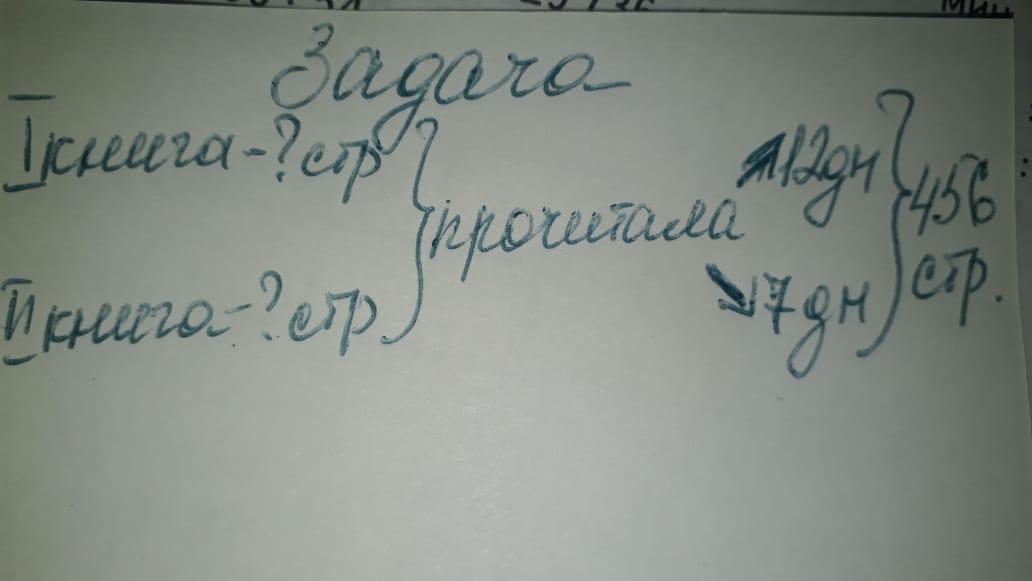 Задача
I книга - ? стр } прочитала ↗12дн } 456 стр.
II книга - ? стр ↘17дн